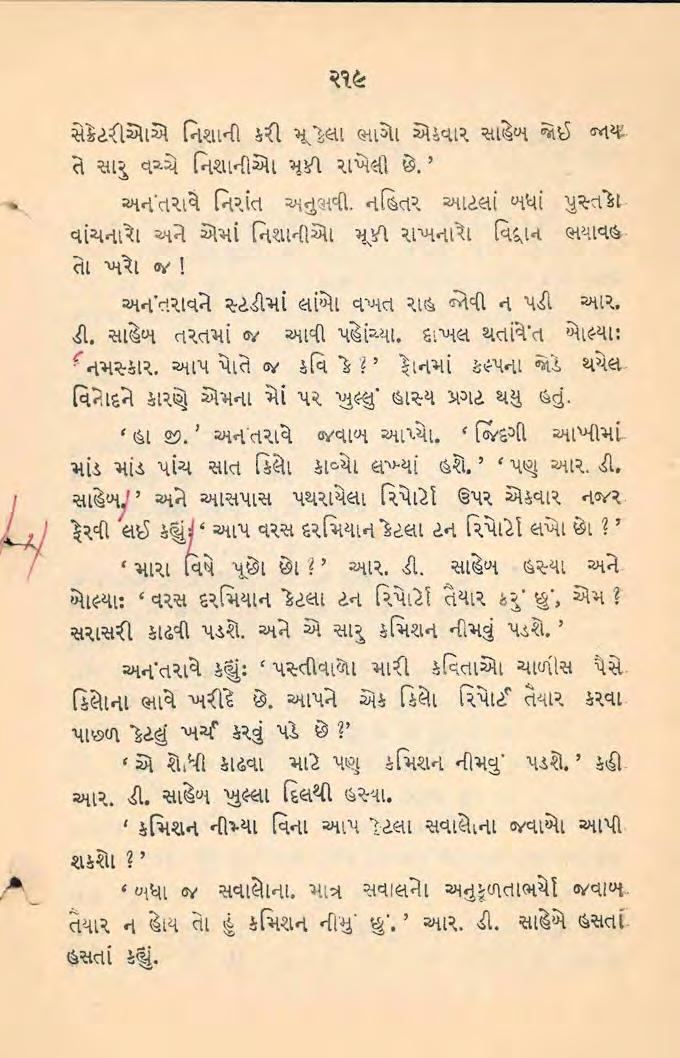 ૨૧૯
સેક્રેટરીઓએ નિશાની કરી મૂકેલા ભાગો એકવાર સાહેબ જોઈ જાય
તે સારુ વચ્ચે નિશાનીઓ મૂકી રાખેલી છે.’
અનંતરાવે નિરાંત અનુભવી. નહિતર આટલાં બધાં પુસ્તકો
વાંચનારો અને એમાં નિશાનીઓ મૂકી રાખનારો વિદ્વાન ભયાવહ
તો ખરો જ !
અનંતરાવને સ્ટડીમાં લાંબો વખત રાહ જોવી ન પડી આર.
ડી. સાહેબ તરતમાં જ આવી પહોંચ્યા. દાખલ થતાંવેંત બોલ્યા:
‘નમસ્કાર. આપ પોતે જ કવિ કે ?’ ફોનમાં કલ્પના જોડે થયેલ
વિનોદને કારણે એમના મોં પર ખુલ્લું હાસ્ય પ્રગટ થયુ હતું.
‘હા જી.’ અનંતરાવે જવાબ આપ્યો. ‘જિંદગી આખીમાં
માંડ માંડ પાંચ સાત કિલો કાવ્યો લખ્યાં હશે.’ ‘પણ આર. ડી.
સાહેબ.’ અને આસપાસ પથરાયેલા રિપોર્ટો ઉપર એકવાર નજર
ફેરવી લઈ કહ્યું: ‘આપ વરસ દરમિયાન કેટલા ટન રિપોર્ટો લખો છો ?’
‘મારા વિષે પૂછો છો ?’ આર. ડી. સાહેબ હસ્યા અને
બોલ્યા: ‘વરસ દરમિયાન કેટલા ટન રિપોર્ટો તૈયાર કરું છું, એમ ?
સરાસરી કાઢવી પડશે. અને એ સારુ કમિશન નીમવું પડશે.’
અનંતરાવે કહ્યું: ‘પસ્તીવાળો મારી કવિતાઓ ચાળીસ પૈસે
કિલોના ભાવે ખરીદે છે. આપને એક કિલો રિપોર્ટ તૈયાર કરવા
પાછળ કેટલું ખર્ચ કરવું પડે છે ?’
‘એ શોધી કાઢવા માટે પણ કમિશન નીમવું પડશે.’ કહી
આર. ડી. સાહેબ ખુલ્લા દિલથી હસ્યા.
‘કમિશન નીમ્યા વિના આપ કેટલા સવાલોના જવાબો આપી
શકશો ?’
‘બધા જ સવાલોના. માત્ર સવાલનો અનુકૂળતાભર્યો જવાબ
તૈયાર ન હોય તો હું કમિશન નીમું છું.’ આર. ડી. સાહેબે હસતાં
હસતાં કહ્યું.